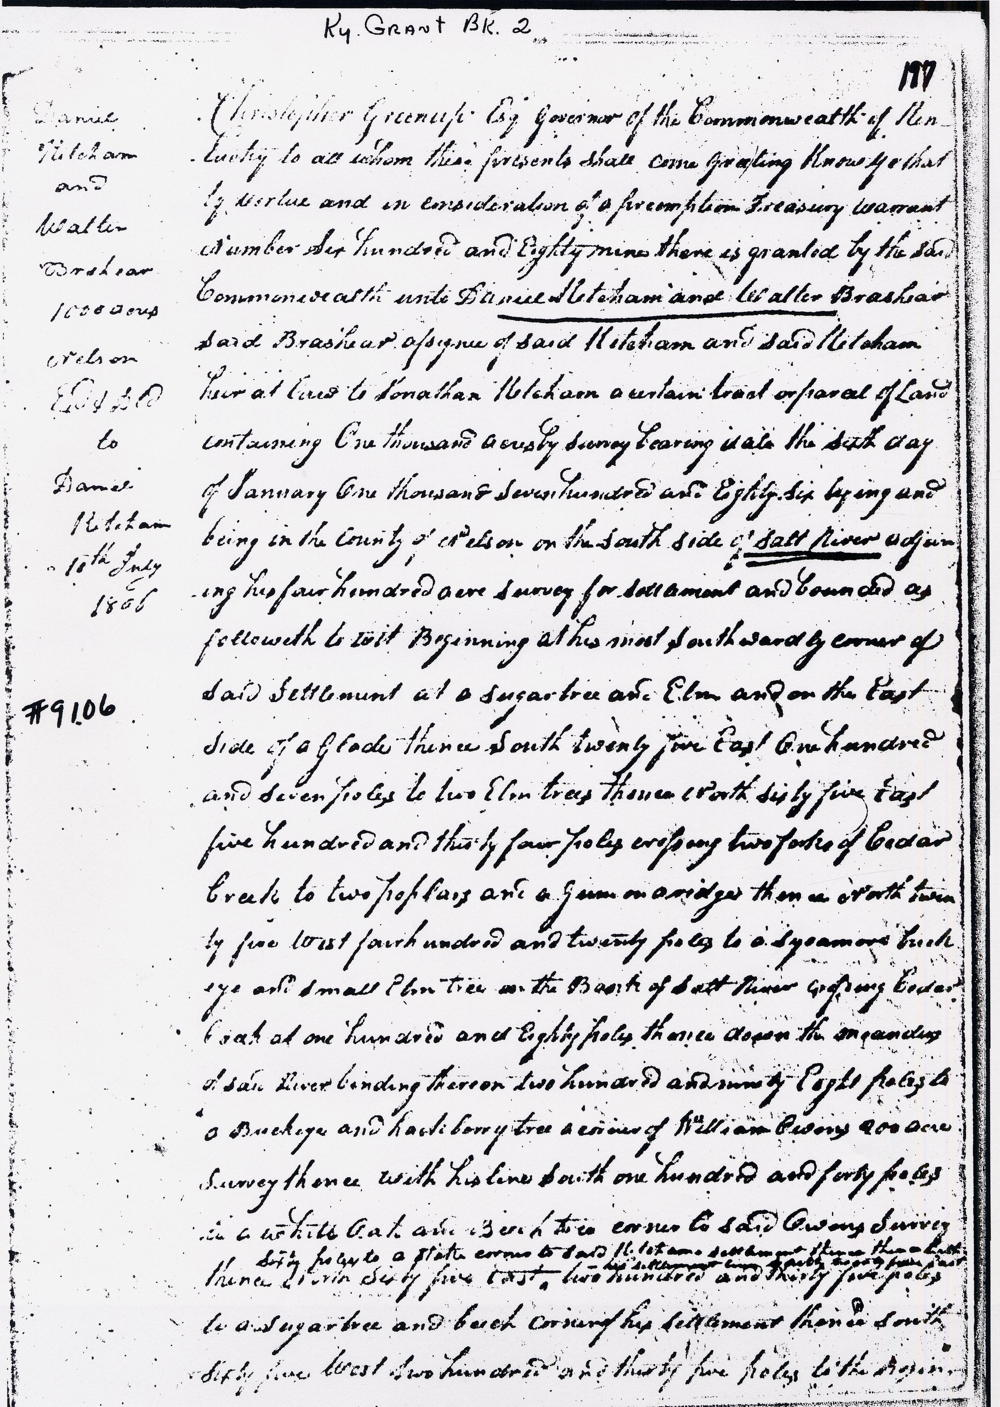 Ky. GRANT BK. 2
197
Daniel
Ketcham
and
Walter
Brshear
1000 acres
Nelson
Exd & Dd
to
Daniel
Ketcham
10th July
1806
#9106
Christopher Greenup Esq Governor of the Commonwealth of Ken
tucky to all whom these presents shall come greeting Know ye that
by virtue and in consideration of a preemption Treasury warrant
Number six hundred and Eighty nine there is granted by the said
Commonwealth unto Daniel Ketcham and Walter Brashear
said Brashear assignee of said Ketcham and said Ketcham
heir at Law to Jonathan Ketcham a certain tract or parcel of Land
containing One thousand acres by survey bearing date the sixth day
of January One thousand seven hundred and Eighty six lying and
being in the County of Nelson on the South side of Salt River adjoin
ing his four hundred acre survey for settlement and bounded as
followeth to wit Beginning at his most Southwardly corner of
said settlement at a sugartree and Elm and on the East
side of a Glade thence South twenty five East One hundred
and seven poles to two Elm trees thence North sixty five East
five hundred and thirty four poles crossing two forks of Cedar
Creek to two poplars and a Gum on a ridge thence North twen
ty five West four hundred and twenty poles to a Sycamore buck
eye and small Elm tree on the Bank of Salt River crossing Cedar
Creek at one hundred and Eighty poles thence down the meanders
of said River binding thereon two hundred and ninety Eight poles to
a Buckeye and hackberry tree a corner of William Owens 200 acre
Survey thence with his line South one hundred and forty poles
to a white Oak and Beech tree corner to said Owens Survey
sixty poles to a stake corner to said Ketchams settlement thence
thence North sixty five East two hundred and thirty five poles
to a sugartree and beech corner of his settlement thence South
sixty five West two hundred and thirty five poles to the Begin